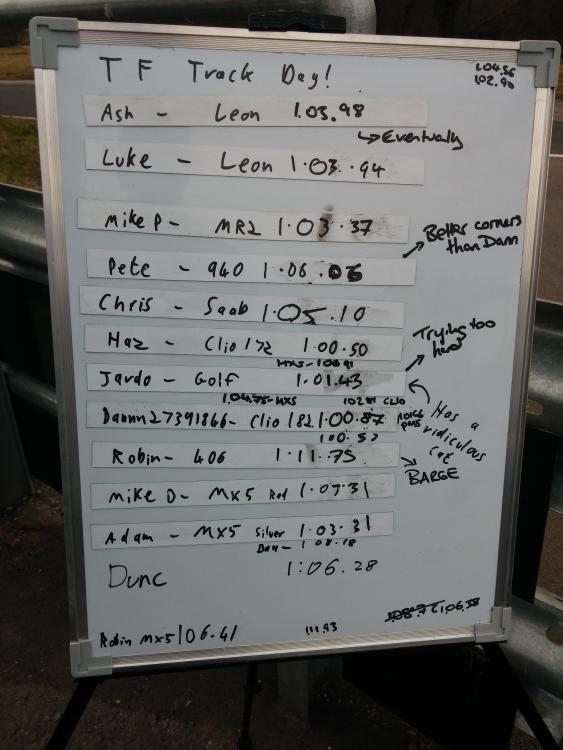 TF Track Day!
1.04.56
1.02.90
Ash - Leon 1.03.98
↳ Eventually
Luke - Leon 1.03.94
Mike P - MR2 1.03.37
Better corners
than Dann
Pete - 940 1.06.06
Chris - Saab 1.05.10
Haz - Clio 172 1.00.50
Trying too
hard
Jardo - Golf 1.01.43
1.04.75 - MX5
102.81 CLIO
Has a
ridiculous
cat
Dannn27391866 - Clio 182 1.00.87
100.57
Robin - 406 1.11.75
BARGE
Mike D - MX5 Red 1.07.31
Adam - MX5 Silver 1.03.31
Dan - 1 08.18
Dunc 1:06.28
1.06.38
Robin MX5 106.41
111.93